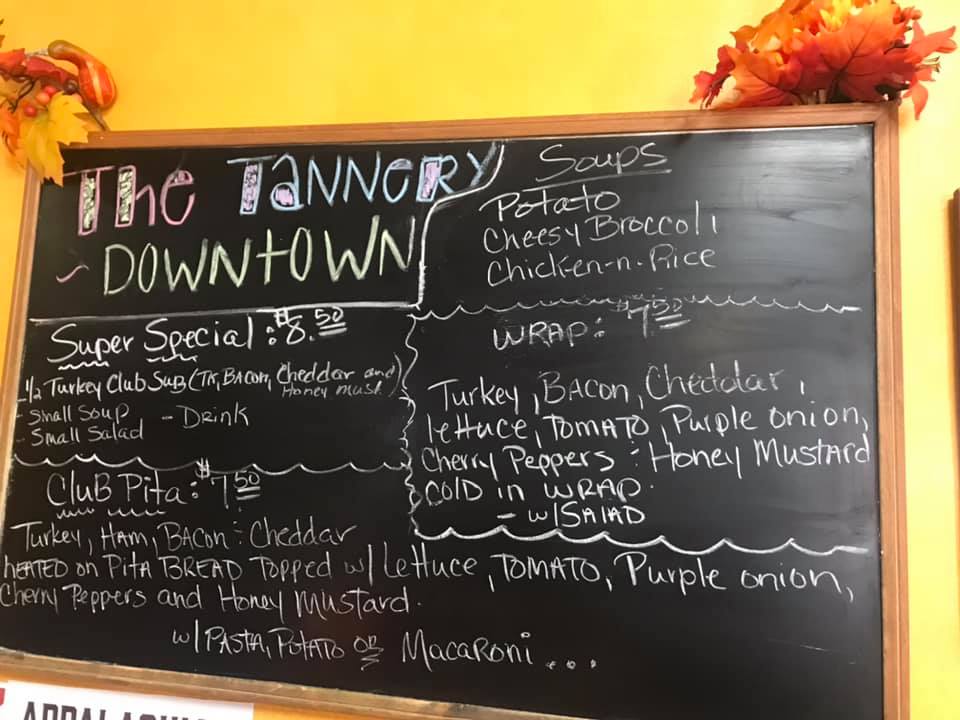 The Tannery
~ Downtown
Soups
Potato
Cheesy Broccoli
Chicken-n-Rice
Super Special: $8.50
- 1/2 Turkey Club Sub (TK, Bacon, Cheddar and
Honey Must.)
- Small Soup - Drink
- Small Salad
WRAP: $7.50
Turkey, Bacon, Cheddar,
lettuce, Tomato, Purple onion,
Cherry Peppers : Honey Mustard
Cold in wrap.
- w/Salad
Club Pita: $7.50
Turkey, Ham, Bacon : Cheddar
heated on Pita Bread Topped w/ Lettuce, Tomato, Purple onion,
Cherry Peppers and Honey Mustard.
w/ Pasta, Potato or Macaroni...